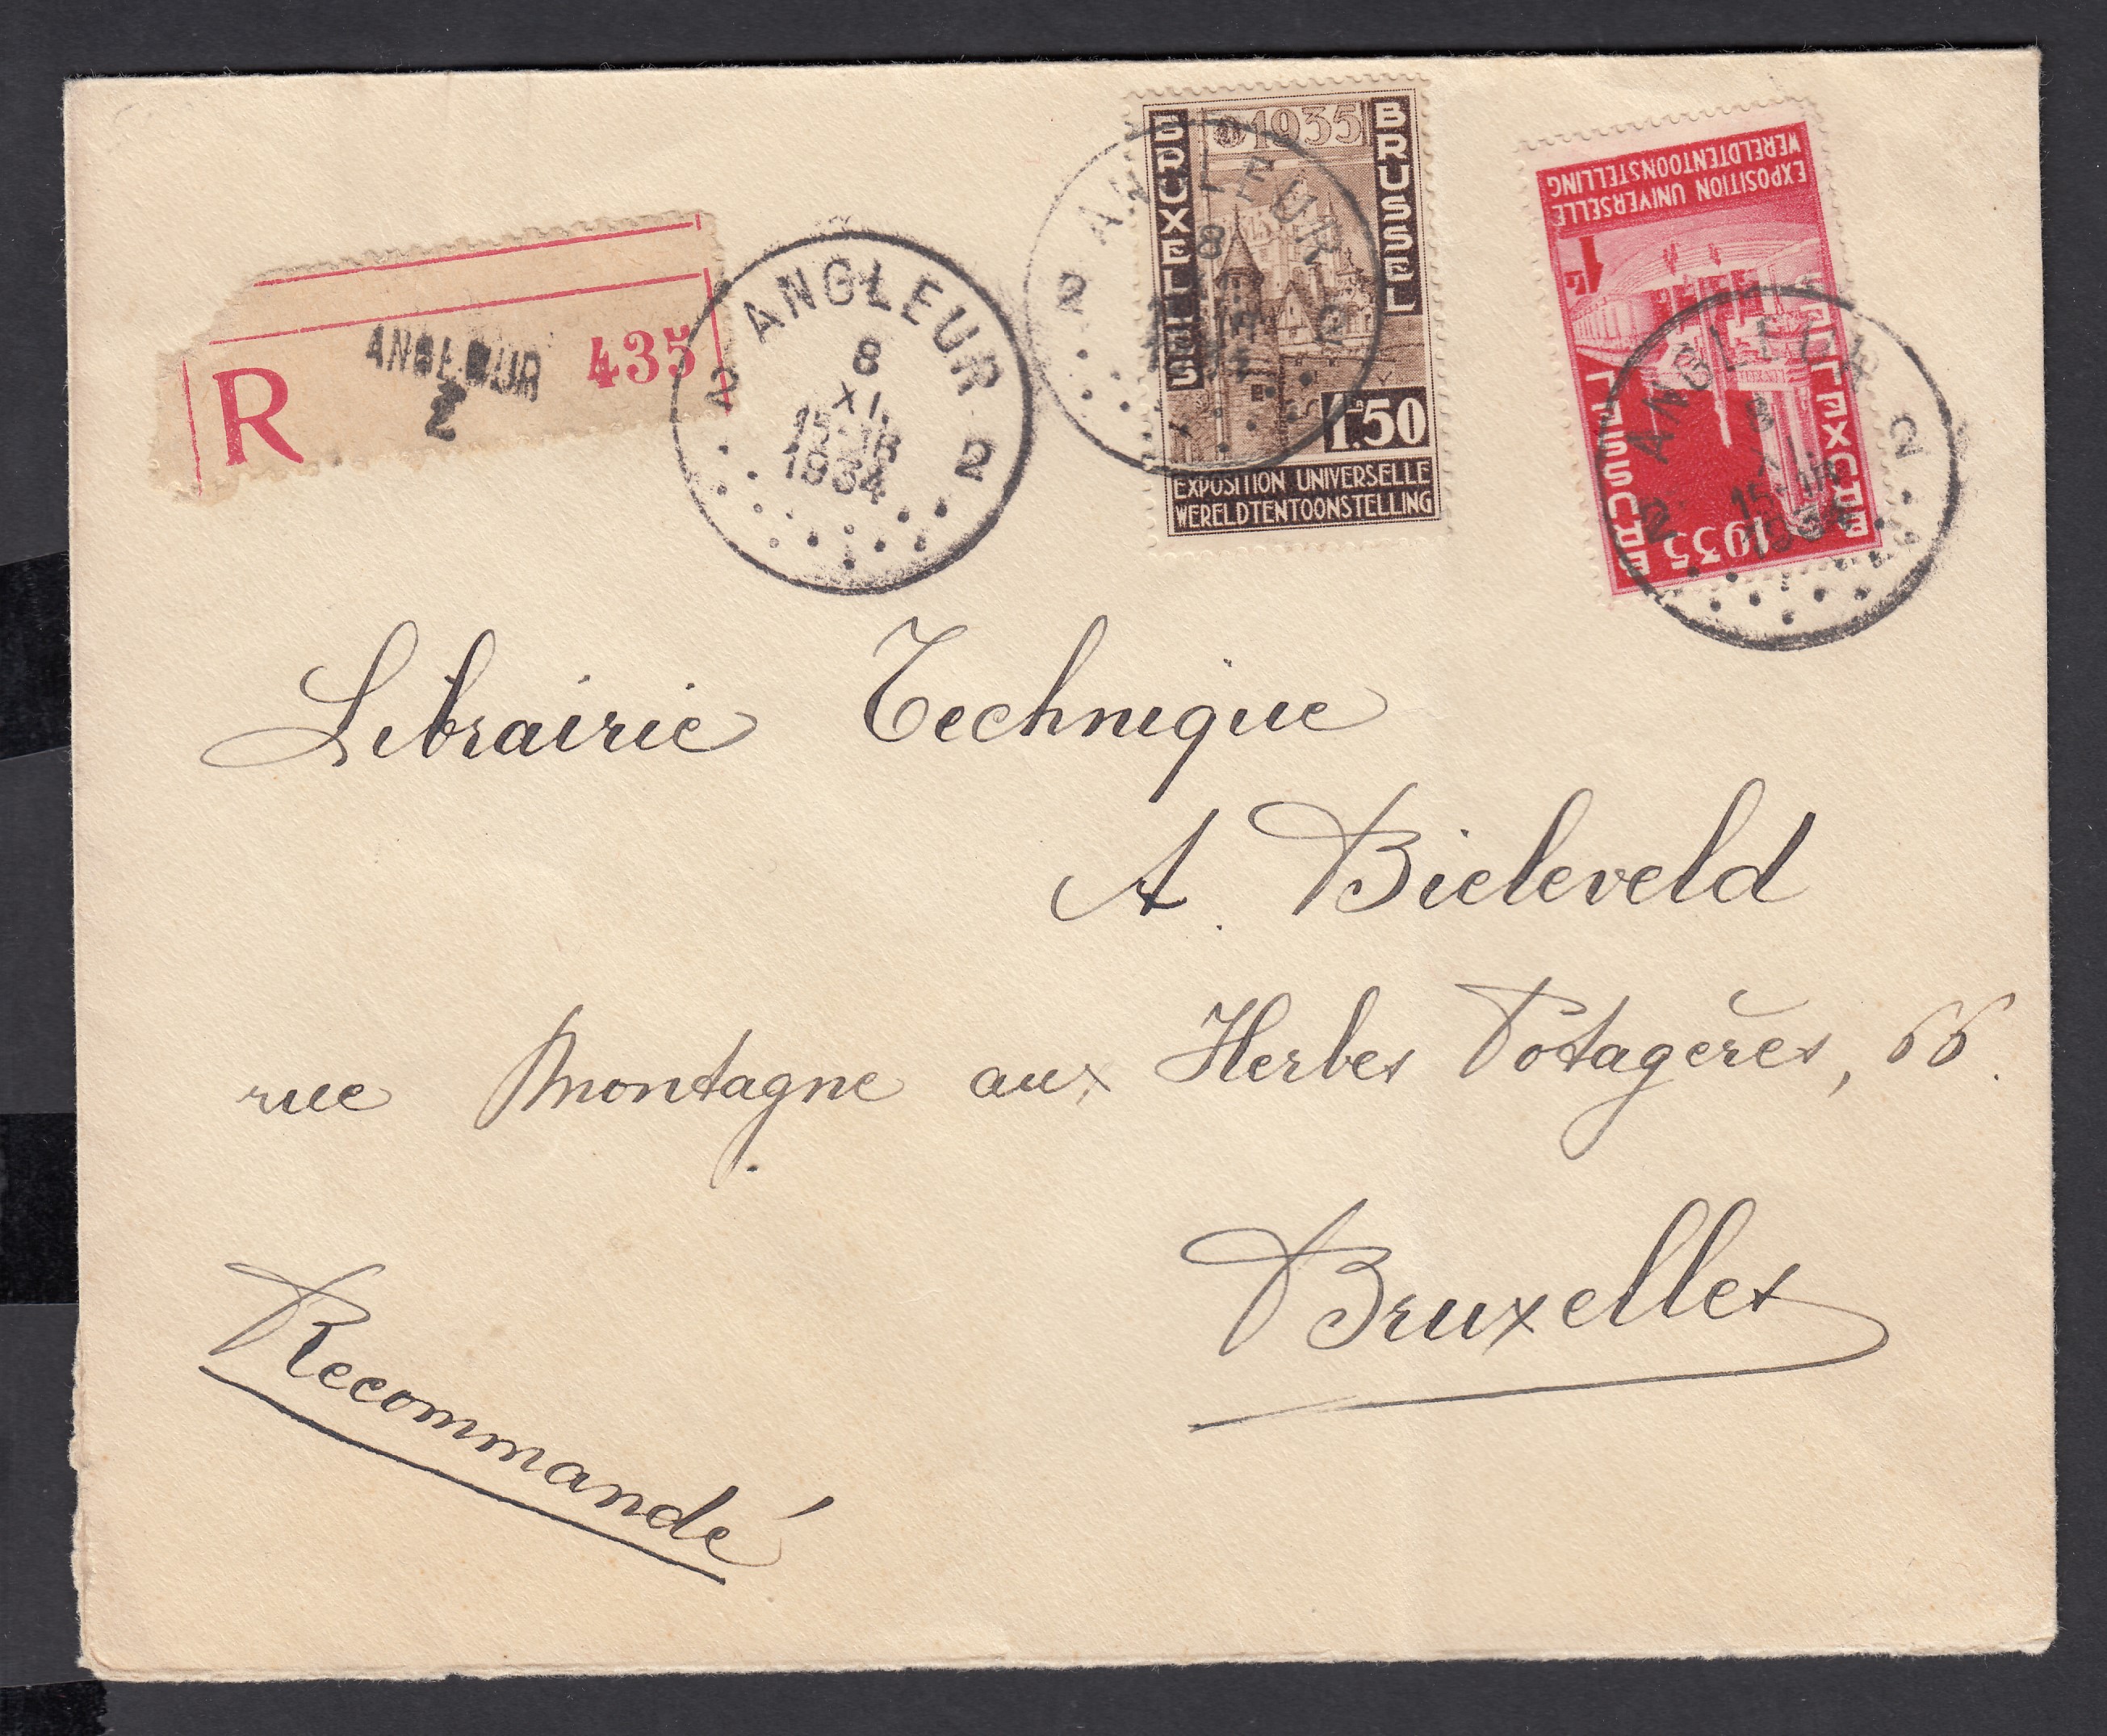 R ANGLEUR 2 435
2 ANGLEUR 2
8
XI
15-18
1934
BRUXELLES
1935
BRUSSEL
1F50
EXPOSITION UNIVERSELLE
WERELDTENTOONSTELLING
2 ANGLEUR 2
8
EXPOSITION UNIVERSELLE
WERELDTENTOONSTELLING
1F
BRUXELLES
BRUSSEL
1935
2 ANGLEUR 2
8
XI
15-18
1934
Librairie Technique
A. Bieleveld
rue Montagne aux Herbes Potagères, 66.
Bruxelles
Recommandé